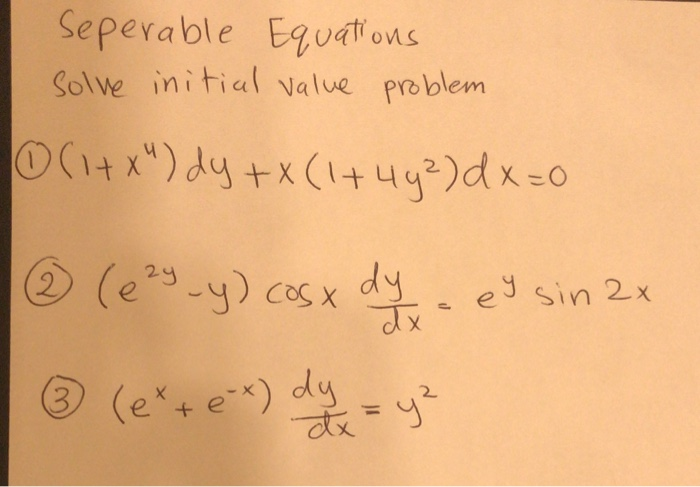 Seperable Equations
Solve initial value problem
① (1+x⁴)dy+x(1+4y²)dx=0
② (e²ʸ-y) cosx dy/dx = eʸ sin2x
③ (eˣ+e⁻ˣ) dy/dx = y²